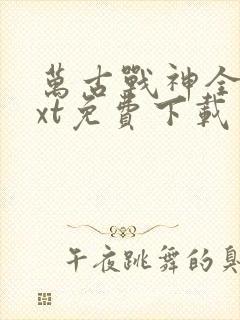 萬古戰神全
xt免費下載
午夜跳舞的